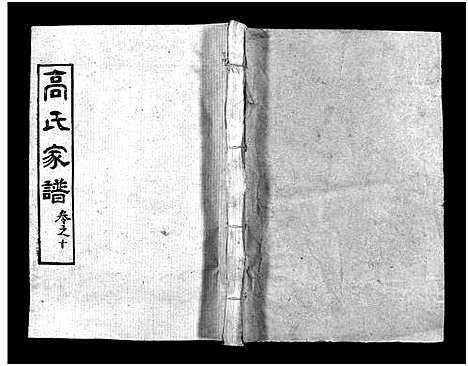 高氏家譜 卷之十